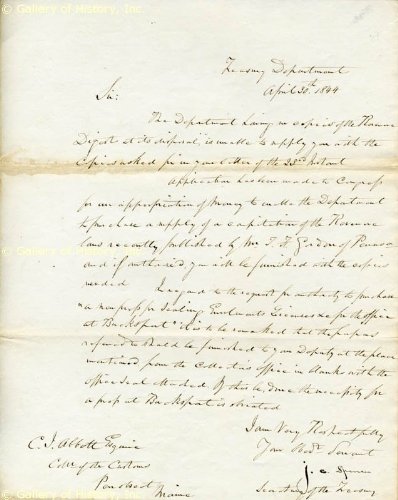 © Gallery of History, Inc.
Treasury Department
April 30th 1844
Sir:
The Department having no copies of the Revenue
Digest at its disposal, is unable to supply you with the
Copies asked for in your letter of the 23rd instant
Application has been made to Congress
for an appropriation of money to enable the Department
to purchase a supply of a compilation of the Revenue
laws recently published by Mr T. F. Gordon of Penna
and if authorized you will be furnished with the copies
needed. In regard to the request for authority to purchase
"a new press for Sealing Enrolments Licenses &c for the office
at Bucksport" it is to be remarked that the papers
referred to should be furnished to your Deputy at the place
mentioned from the Collector's office in blank with the
office Seal attached. If this be done the necessity for
a press at Bucksport is obviated
I am Very Respectfully
Your Obdt Servant
J. C. Spencer
Secretary of the Treasury
C. J. Abbott Esquire
Collr of the Customs
Penobscot
Maine